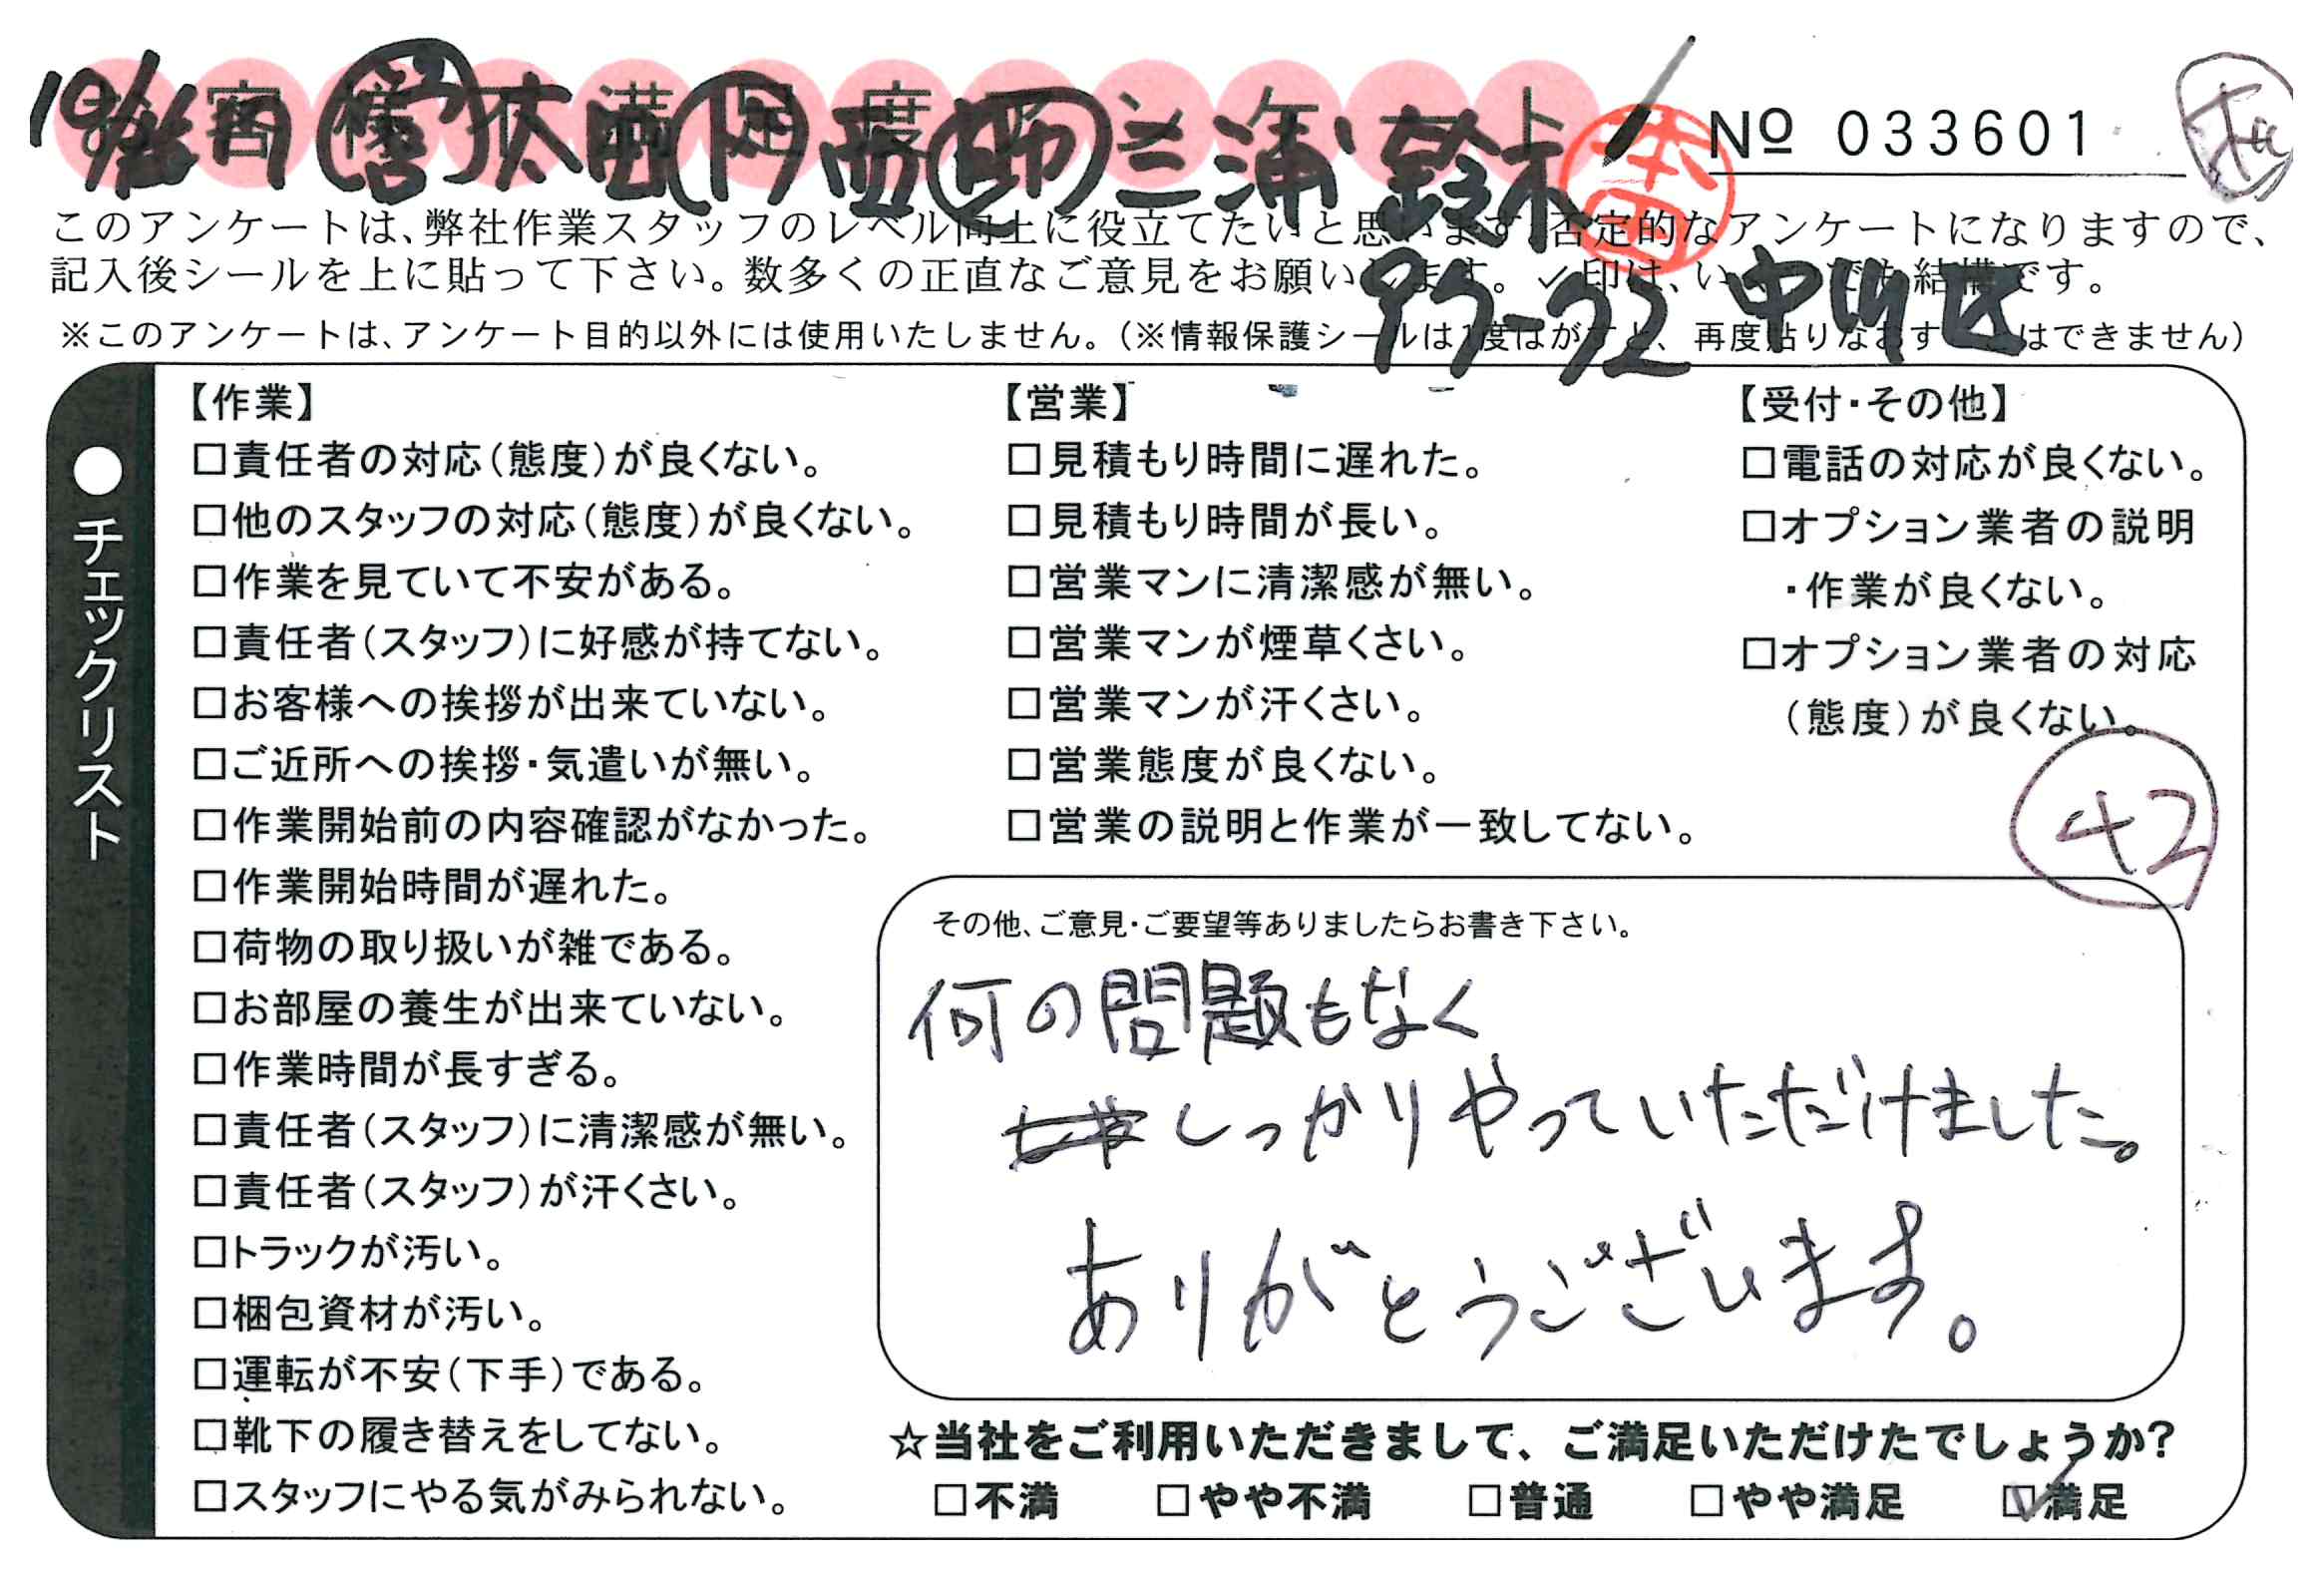 お客様不満足度アンケート
太田 西 三浦 鈴木
本田
№ 033601
このアンケートは、弊社作業スタッフのレベル向上に役立てたいと思います。否定的なアンケートになりますので、
記入後シールを上に貼って下さい。数多くの正直なご意見をお願いします。✓印は、いくつでも結構です。
中川区
※このアンケートは、アンケート目的以外には使用いたしません。(※情報保護シールは1度はがすと、再度貼りなおす事はできません)
●チェックリスト
【作業】
□責任者の対応(態度)が良くない。
□他のスタッフの対応(態度)が良くない。
□作業を見ていて不安がある。
□責任者(スタッフ)に好感が持てない。
□お客様への挨拶が出来ていない。
□ご近所への挨拶・気遣いが無い。
□作業開始前の内容確認がなかった。
□作業開始時間が遅れた。
□荷物の取り扱いが雑である。
□お部屋の養生が出来ていない。
□作業時間が長すぎる。
□責任者(スタッフ)に清潔感が無い。
□責任者(スタッフ)が汗くさい。
□トラックが汚い。
□梱包資材が汚い。
□運転が不安(下手)である。
□靴下の履き替えをしてない。
□スタッフにやる気がみられない。
【営業】
□見積もり時間に遅れた。
□見積もり時間が長い。
□営業マンに清潔感が無い。
□営業マンが煙草くさい。
□営業マンが汗くさい。
□営業態度が良くない。
□営業の説明と作業が一致してない。
【受付・その他】
□電話の対応が良くない。
□オプション業者の説明
・作業が良くない。
□オプション業者の対応
(態度)が良くない。
42
その他、ご意見・ご要望等ありましたらお書き下さい。
何の問題もなく
しっかりやっていただけました。
ありがとうございます。
☆当社をご利用いただきまして、ご満足いただけたでしょうか?
□不満 □やや不満 □普通 □やや満足 ☑満足